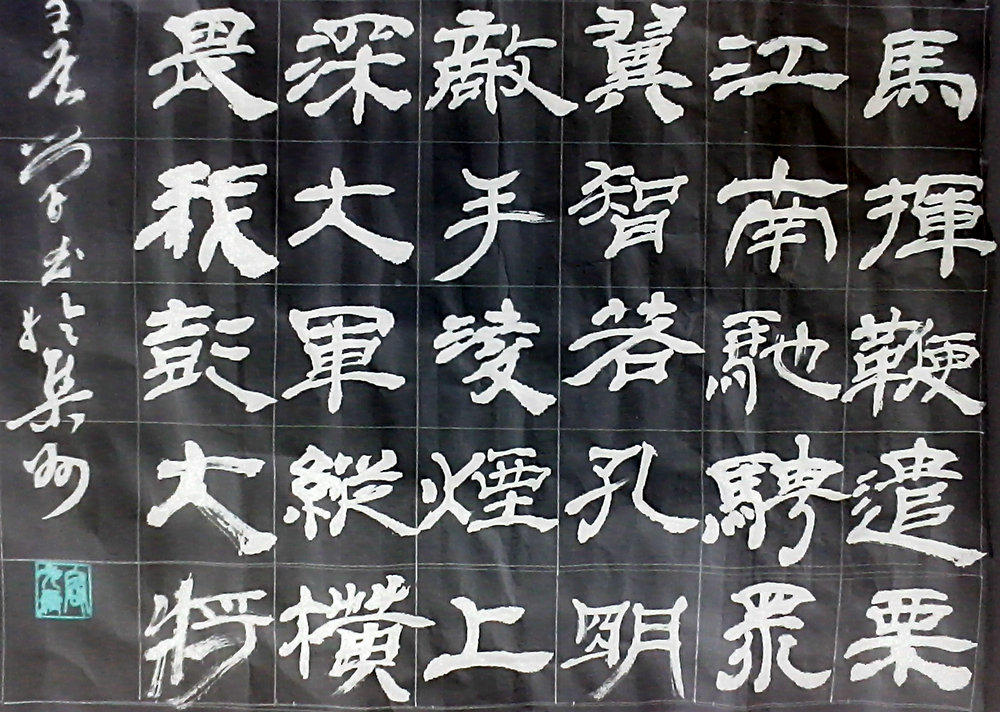 馬揮鞭遣栗
江南馳騁眾
翼智若孔明
敵手淩煙上
深大軍縱橫
畏我彭大將
學書於集州